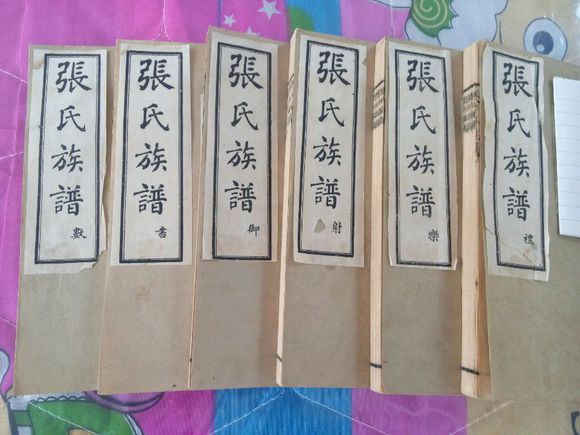 張氏族譜 禮
張氏族譜 樂
張氏族譜 射
張氏族譜 御
張氏族譜 書
張氏族譜 數